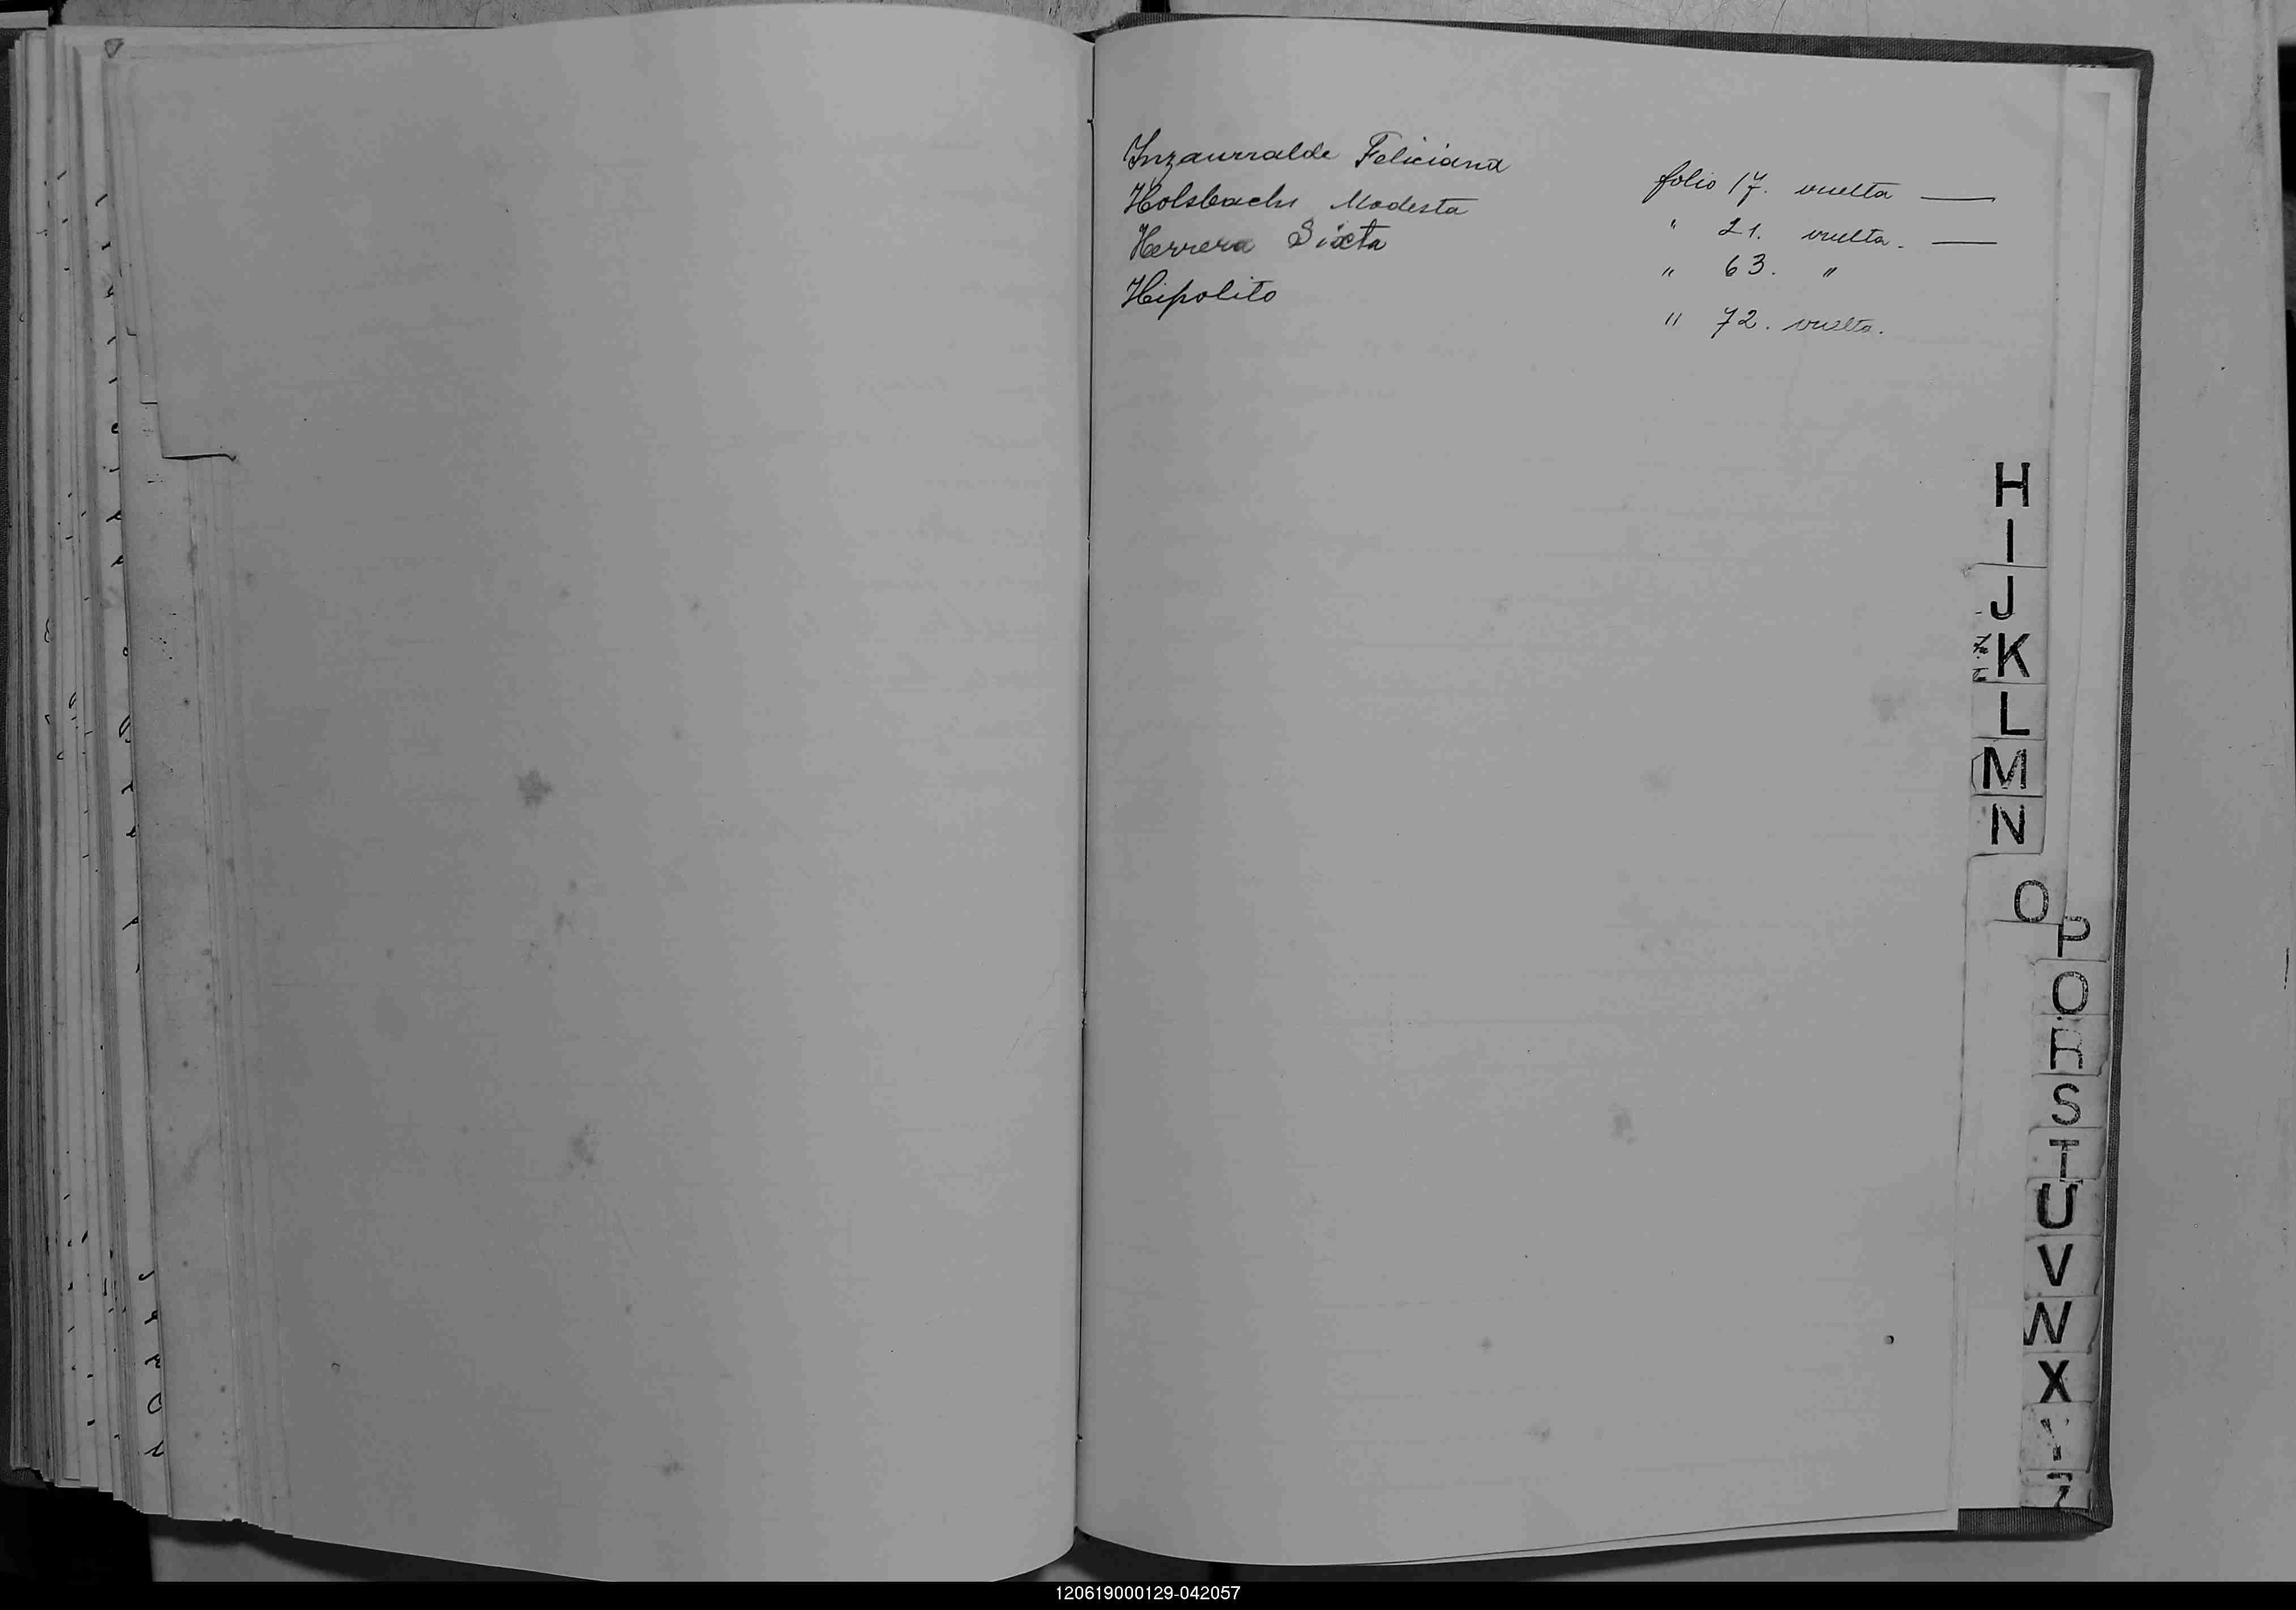 Inzaurralde Feliciana folio 17. vuelta —
Holsbachs Modesta " 21. vuelta. —
Herrera Sixta " 63. "
Hipolito " 72. vuelta.
H
I
J
K
L
M
N
O
P
Q
R
S
T
U
V
W
X
Y
Z
120619000129-042057